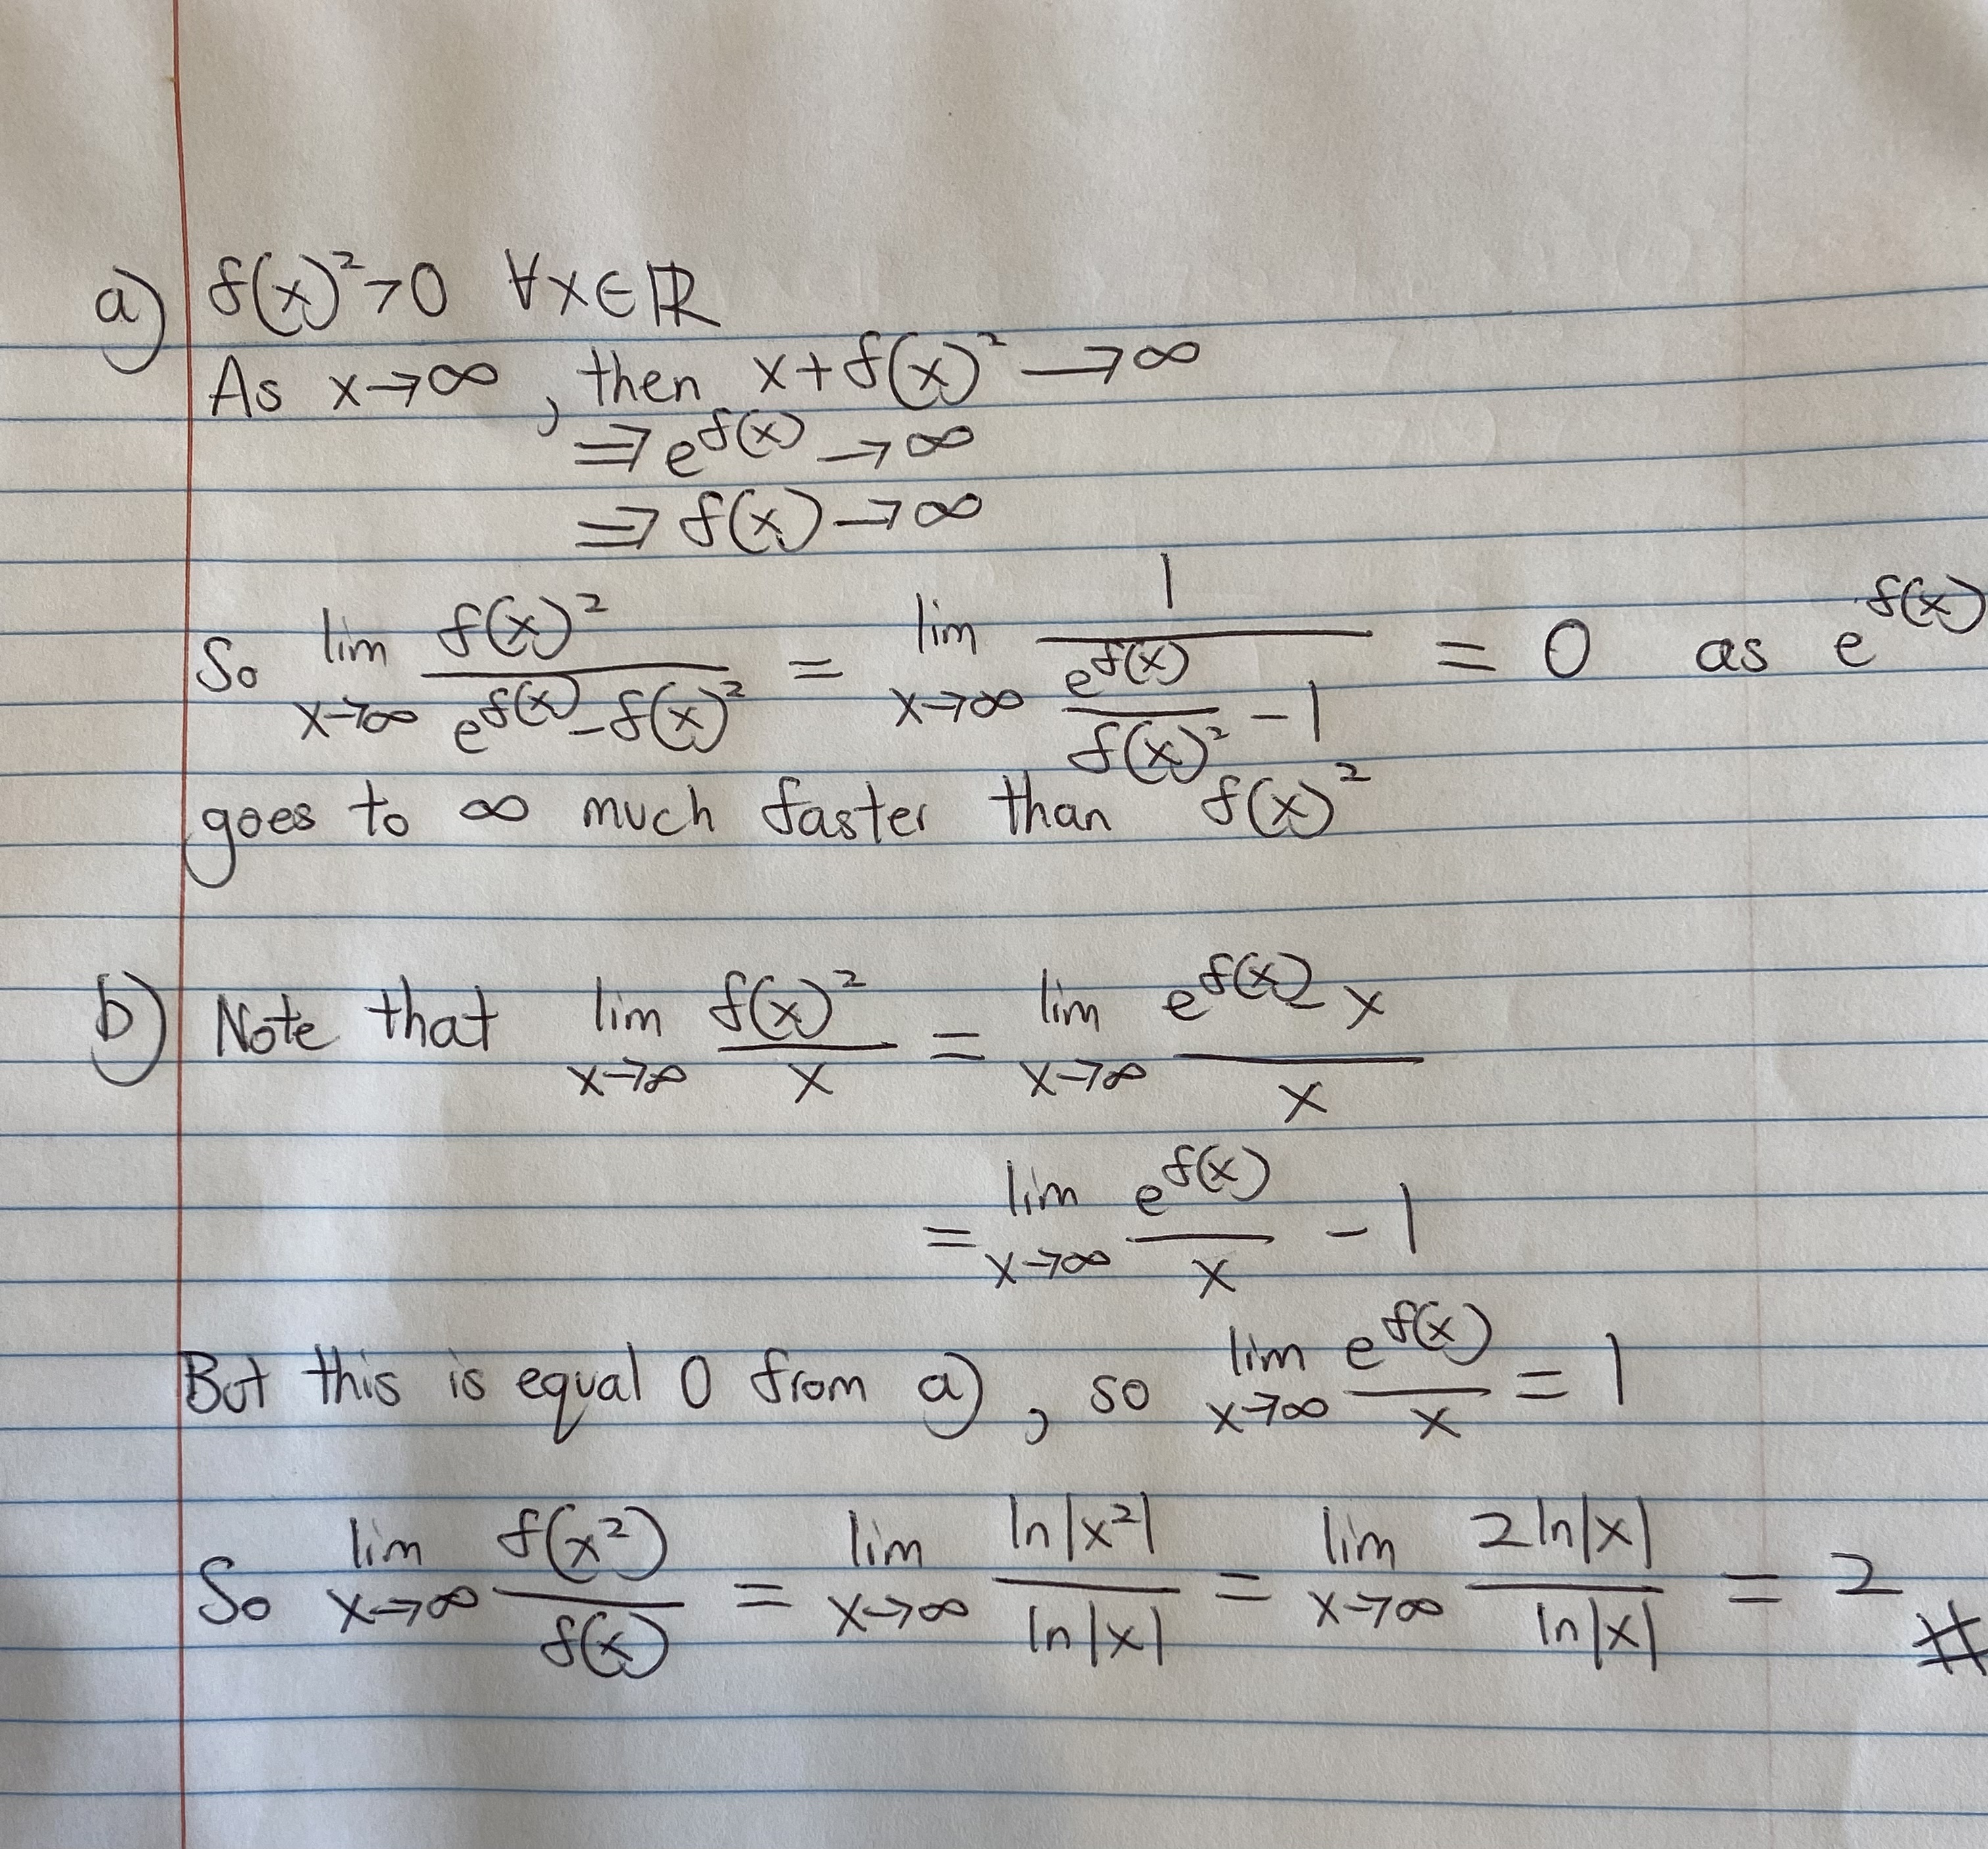 a) f(x)² > 0 ∀x∈ℝ
As x→∞, then x+f(x)² → ∞
⇒ e^{f(x)} → ∞
⇒ f(x) → ∞
So lim_{x→∞} f(x)²/(e^{f(x)} - f(x)²) = lim_{x→∞} 1/(e^{f(x)}/f(x)² - 1) = 0 as e^{f(x)}
goes to ∞ much faster than f(x)²
b) Note that lim_{x→∞} f(x)²/x = lim_{x→∞} (e^{f(x)} - x)/x
= lim_{x→∞} e^{f(x)}/x - 1
But this is equal 0 from a), so lim_{x→∞} e^{f(x)}/x = 1
So lim_{x→∞} f(x²)/f(x) = lim_{x→∞} ln|x²|/ln|x| = lim_{x→∞} 2ln|x|/ln|x| = 2 #